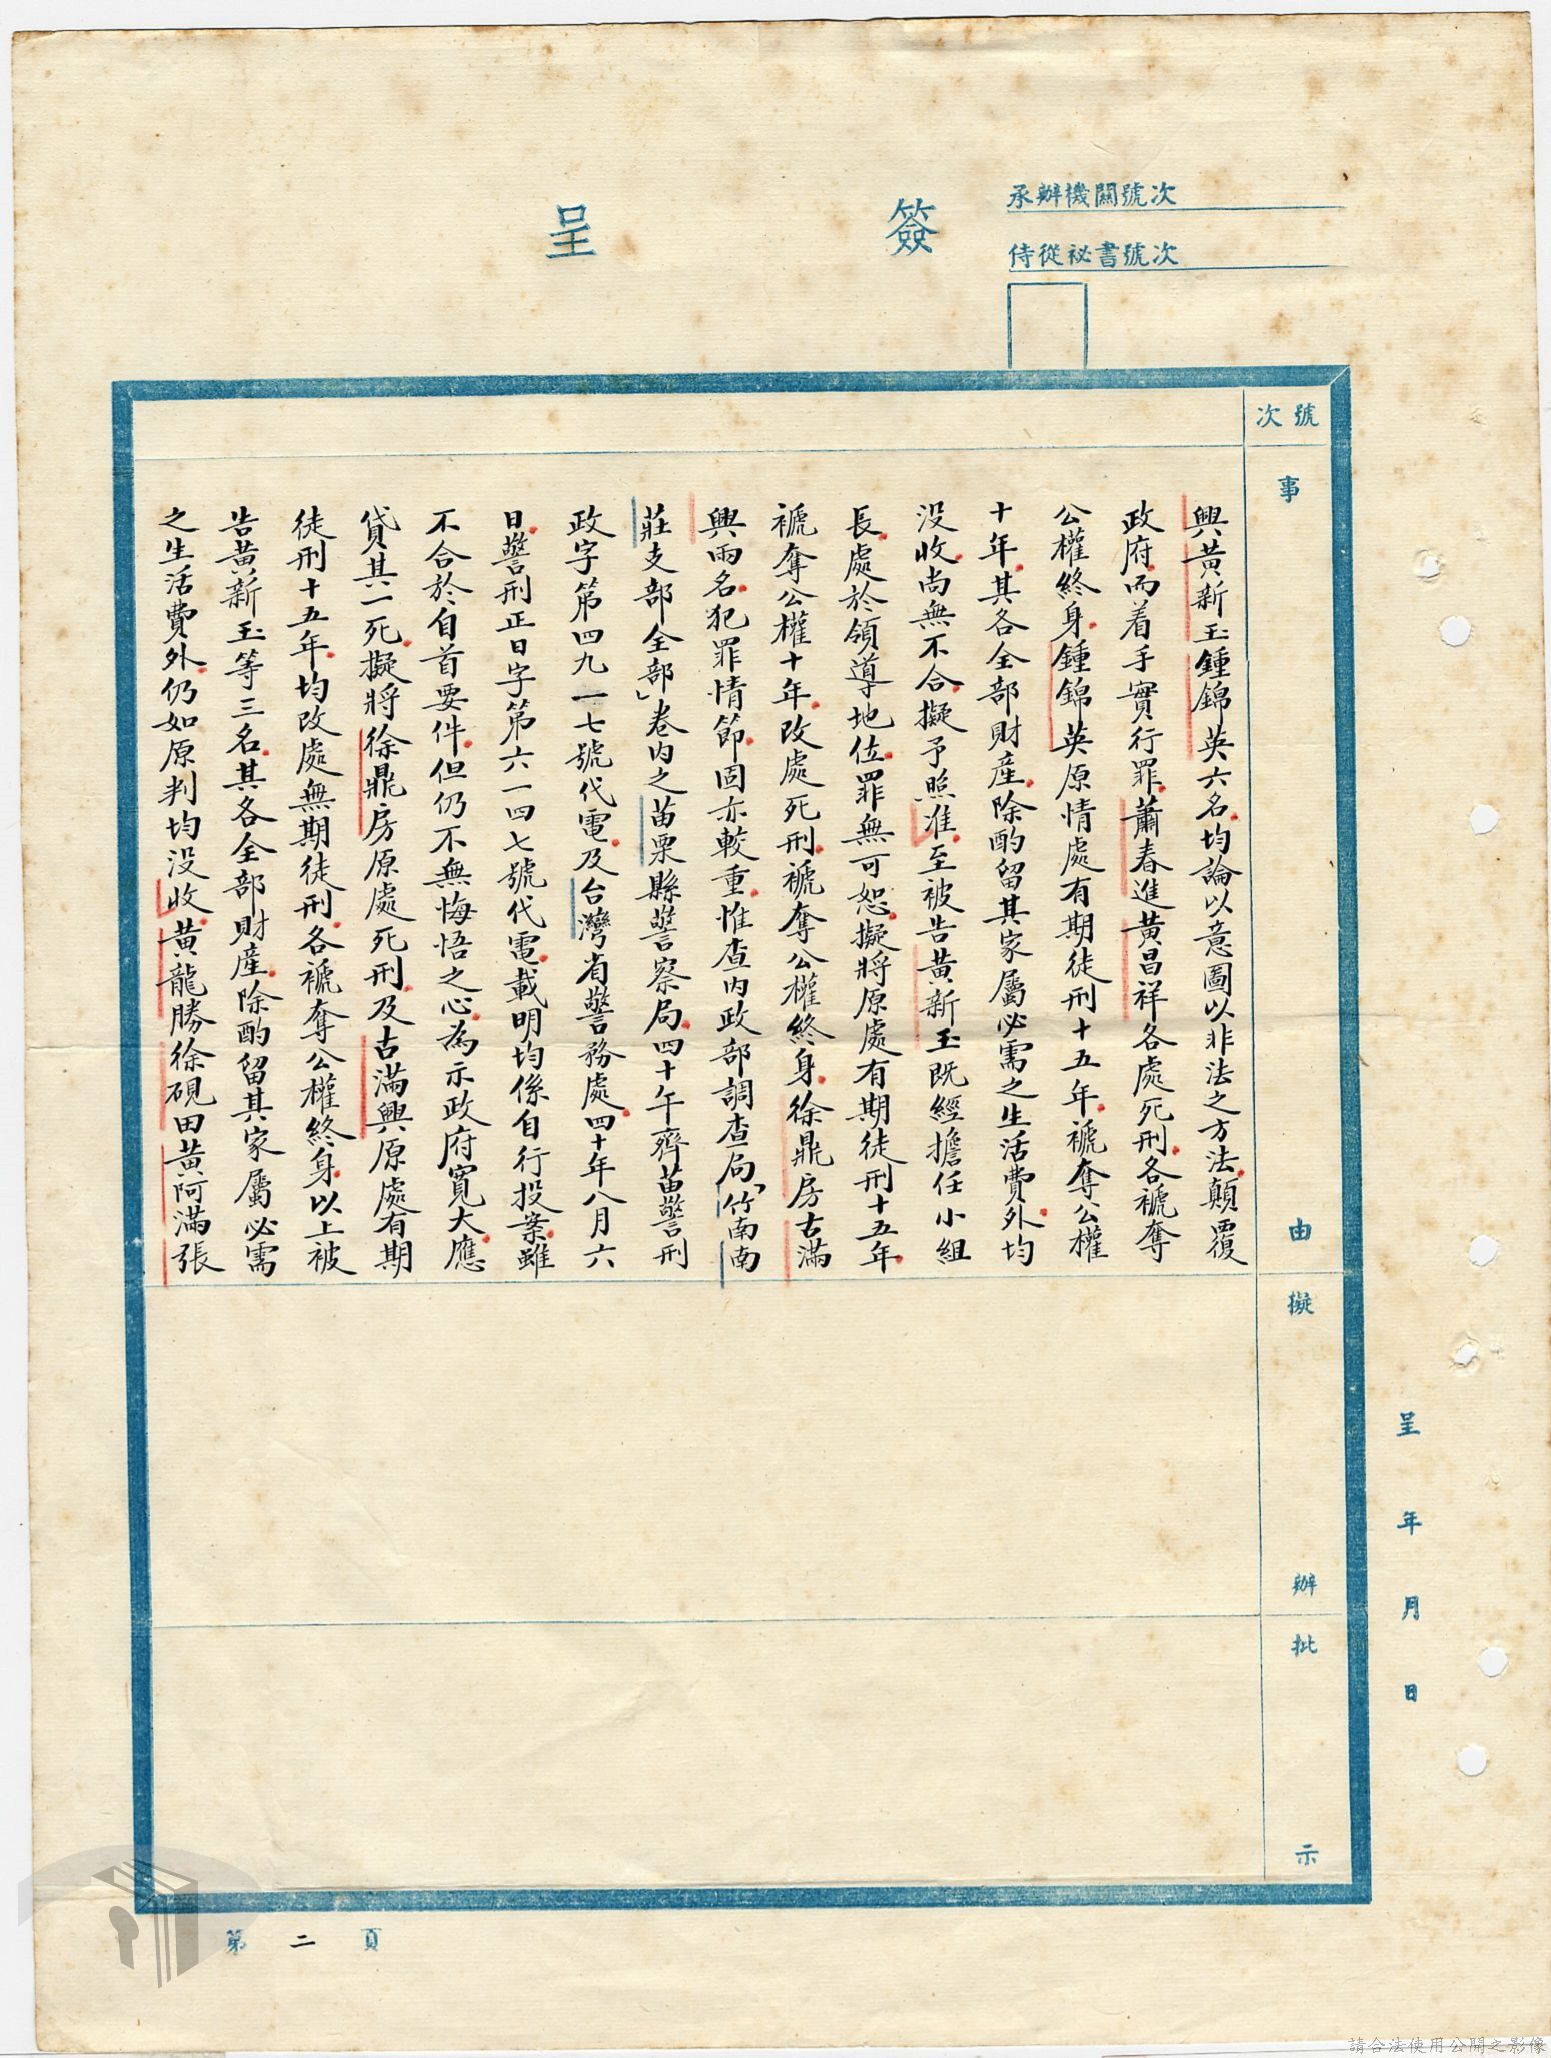 承辦機關號次
侍從祕書號次
簽呈
號次
事由
擬辦
批示
興黃新玉鍾錦英六名均論以意圖以非法之方法顛覆
政府而着手實行罪蕭春進黃昌祥各處死刑各褫奪
公權終身鍾錦英原情處有期徒刑十五年褫奪公權
十年其各全部財產除酌留其家屬必需之生活費外均
沒收尚無不合擬予照准至被告黃新玉既經擔任小組
長處於領導地位罪無可恕擬將原處有期徒刑十五年
褫奪公權十年改處死刑褫奪公權終身徐鼎房古滿
興兩名犯罪情節固亦較重惟查內政部調查局「竹南南
莊支部全部」卷內之苗栗縣警察局四十午齊苗警刑
政字第四九一七號代電及台灣省警務處四十年八月六
日警刑正日字第六一四七號代電載明均係自行投案雖
不合於自首要件但仍不無悔悟之心為示政府寬大應
貸其一死擬將徐鼎房原處死刑及古滿興原處有期
徒刑十五年均改處無期徒刑各褫奪公權終身以上被
告黃新玉等三名其各全部財產除酌留其家屬必需
之生活費外仍如原判均沒收黃龍勝徐硯田黃阿滿張
呈 年 月 日
第二頁
請合法使用公開之影像